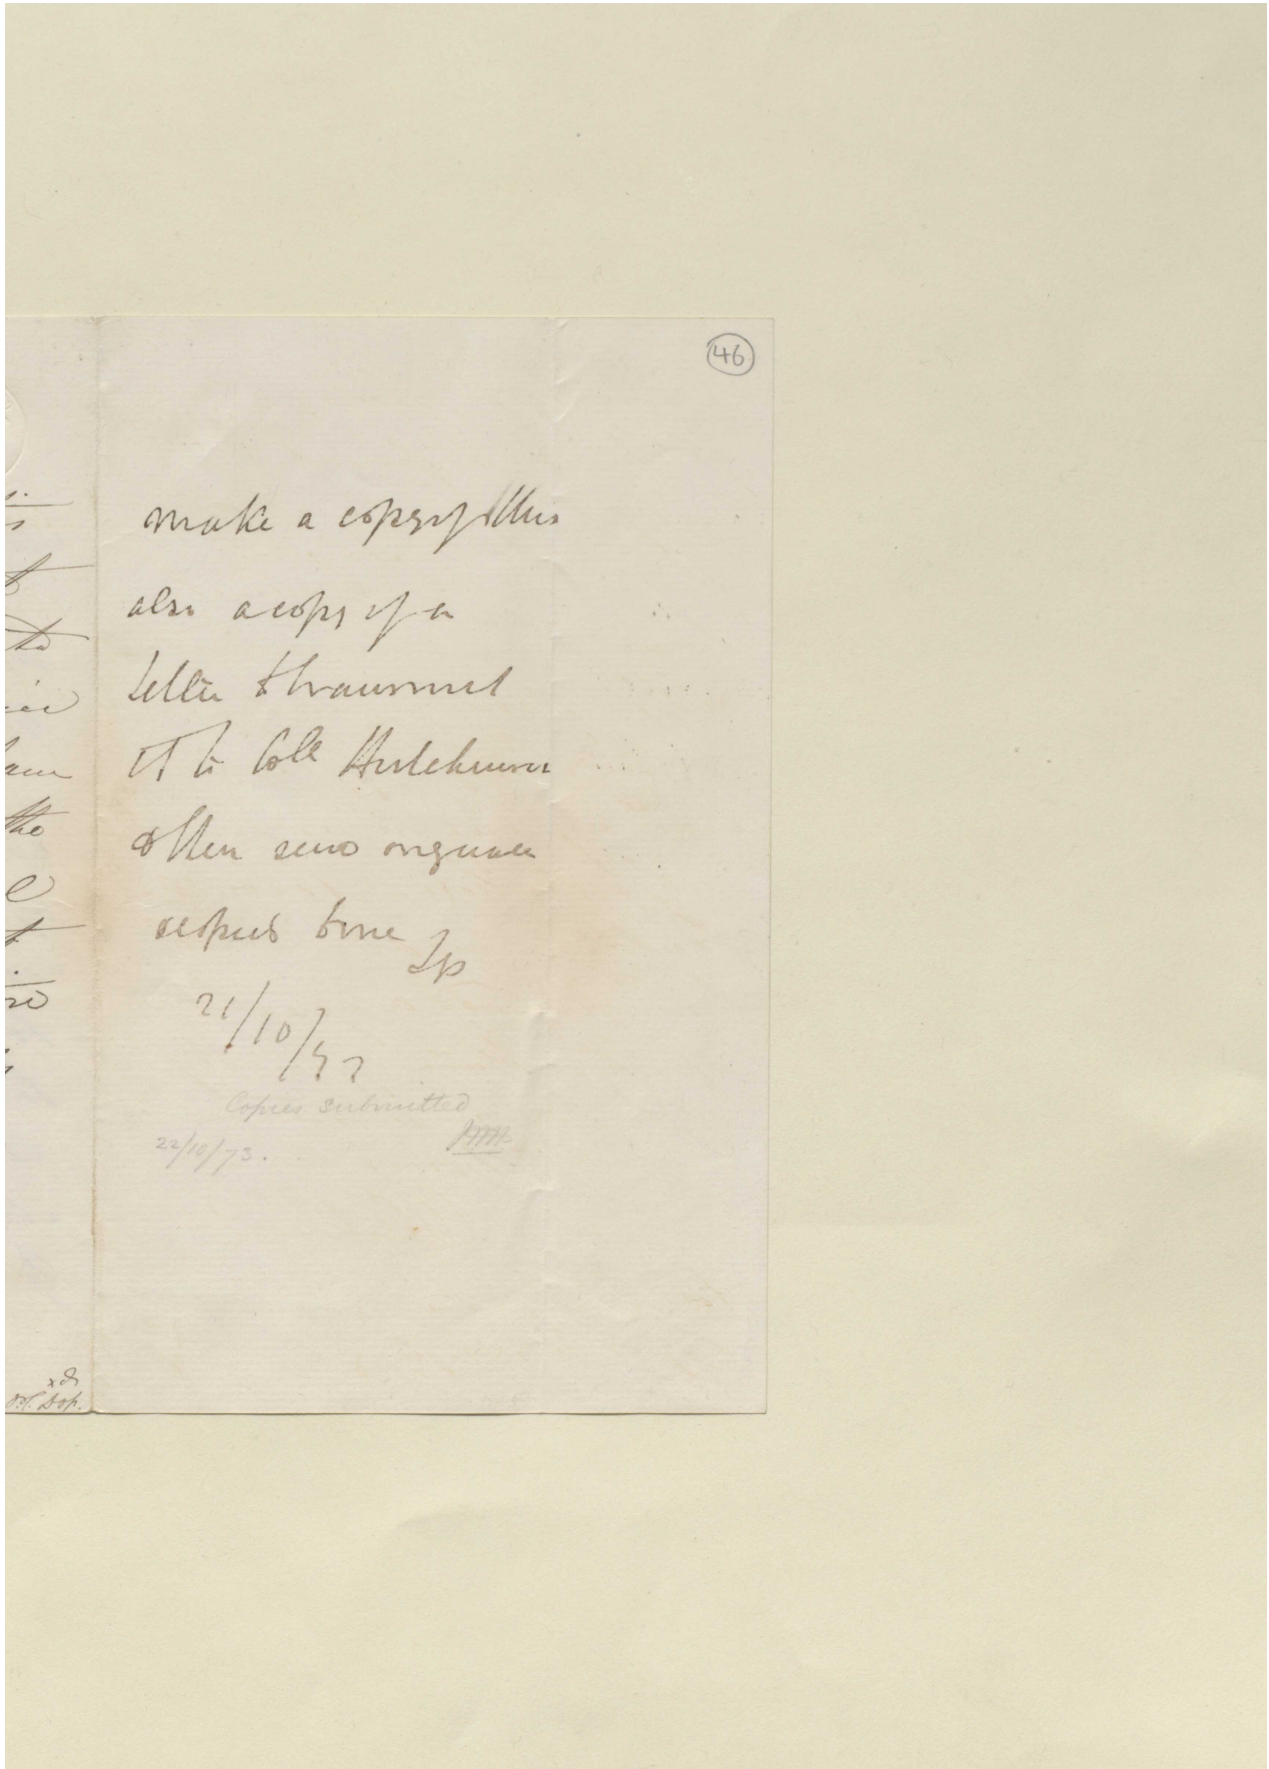 46
make a copy of this
also a copy of a
letter
it to Coll Hutchinson
& then send original
& copies to me
21/10/73
Copies submitted
22/10/73.